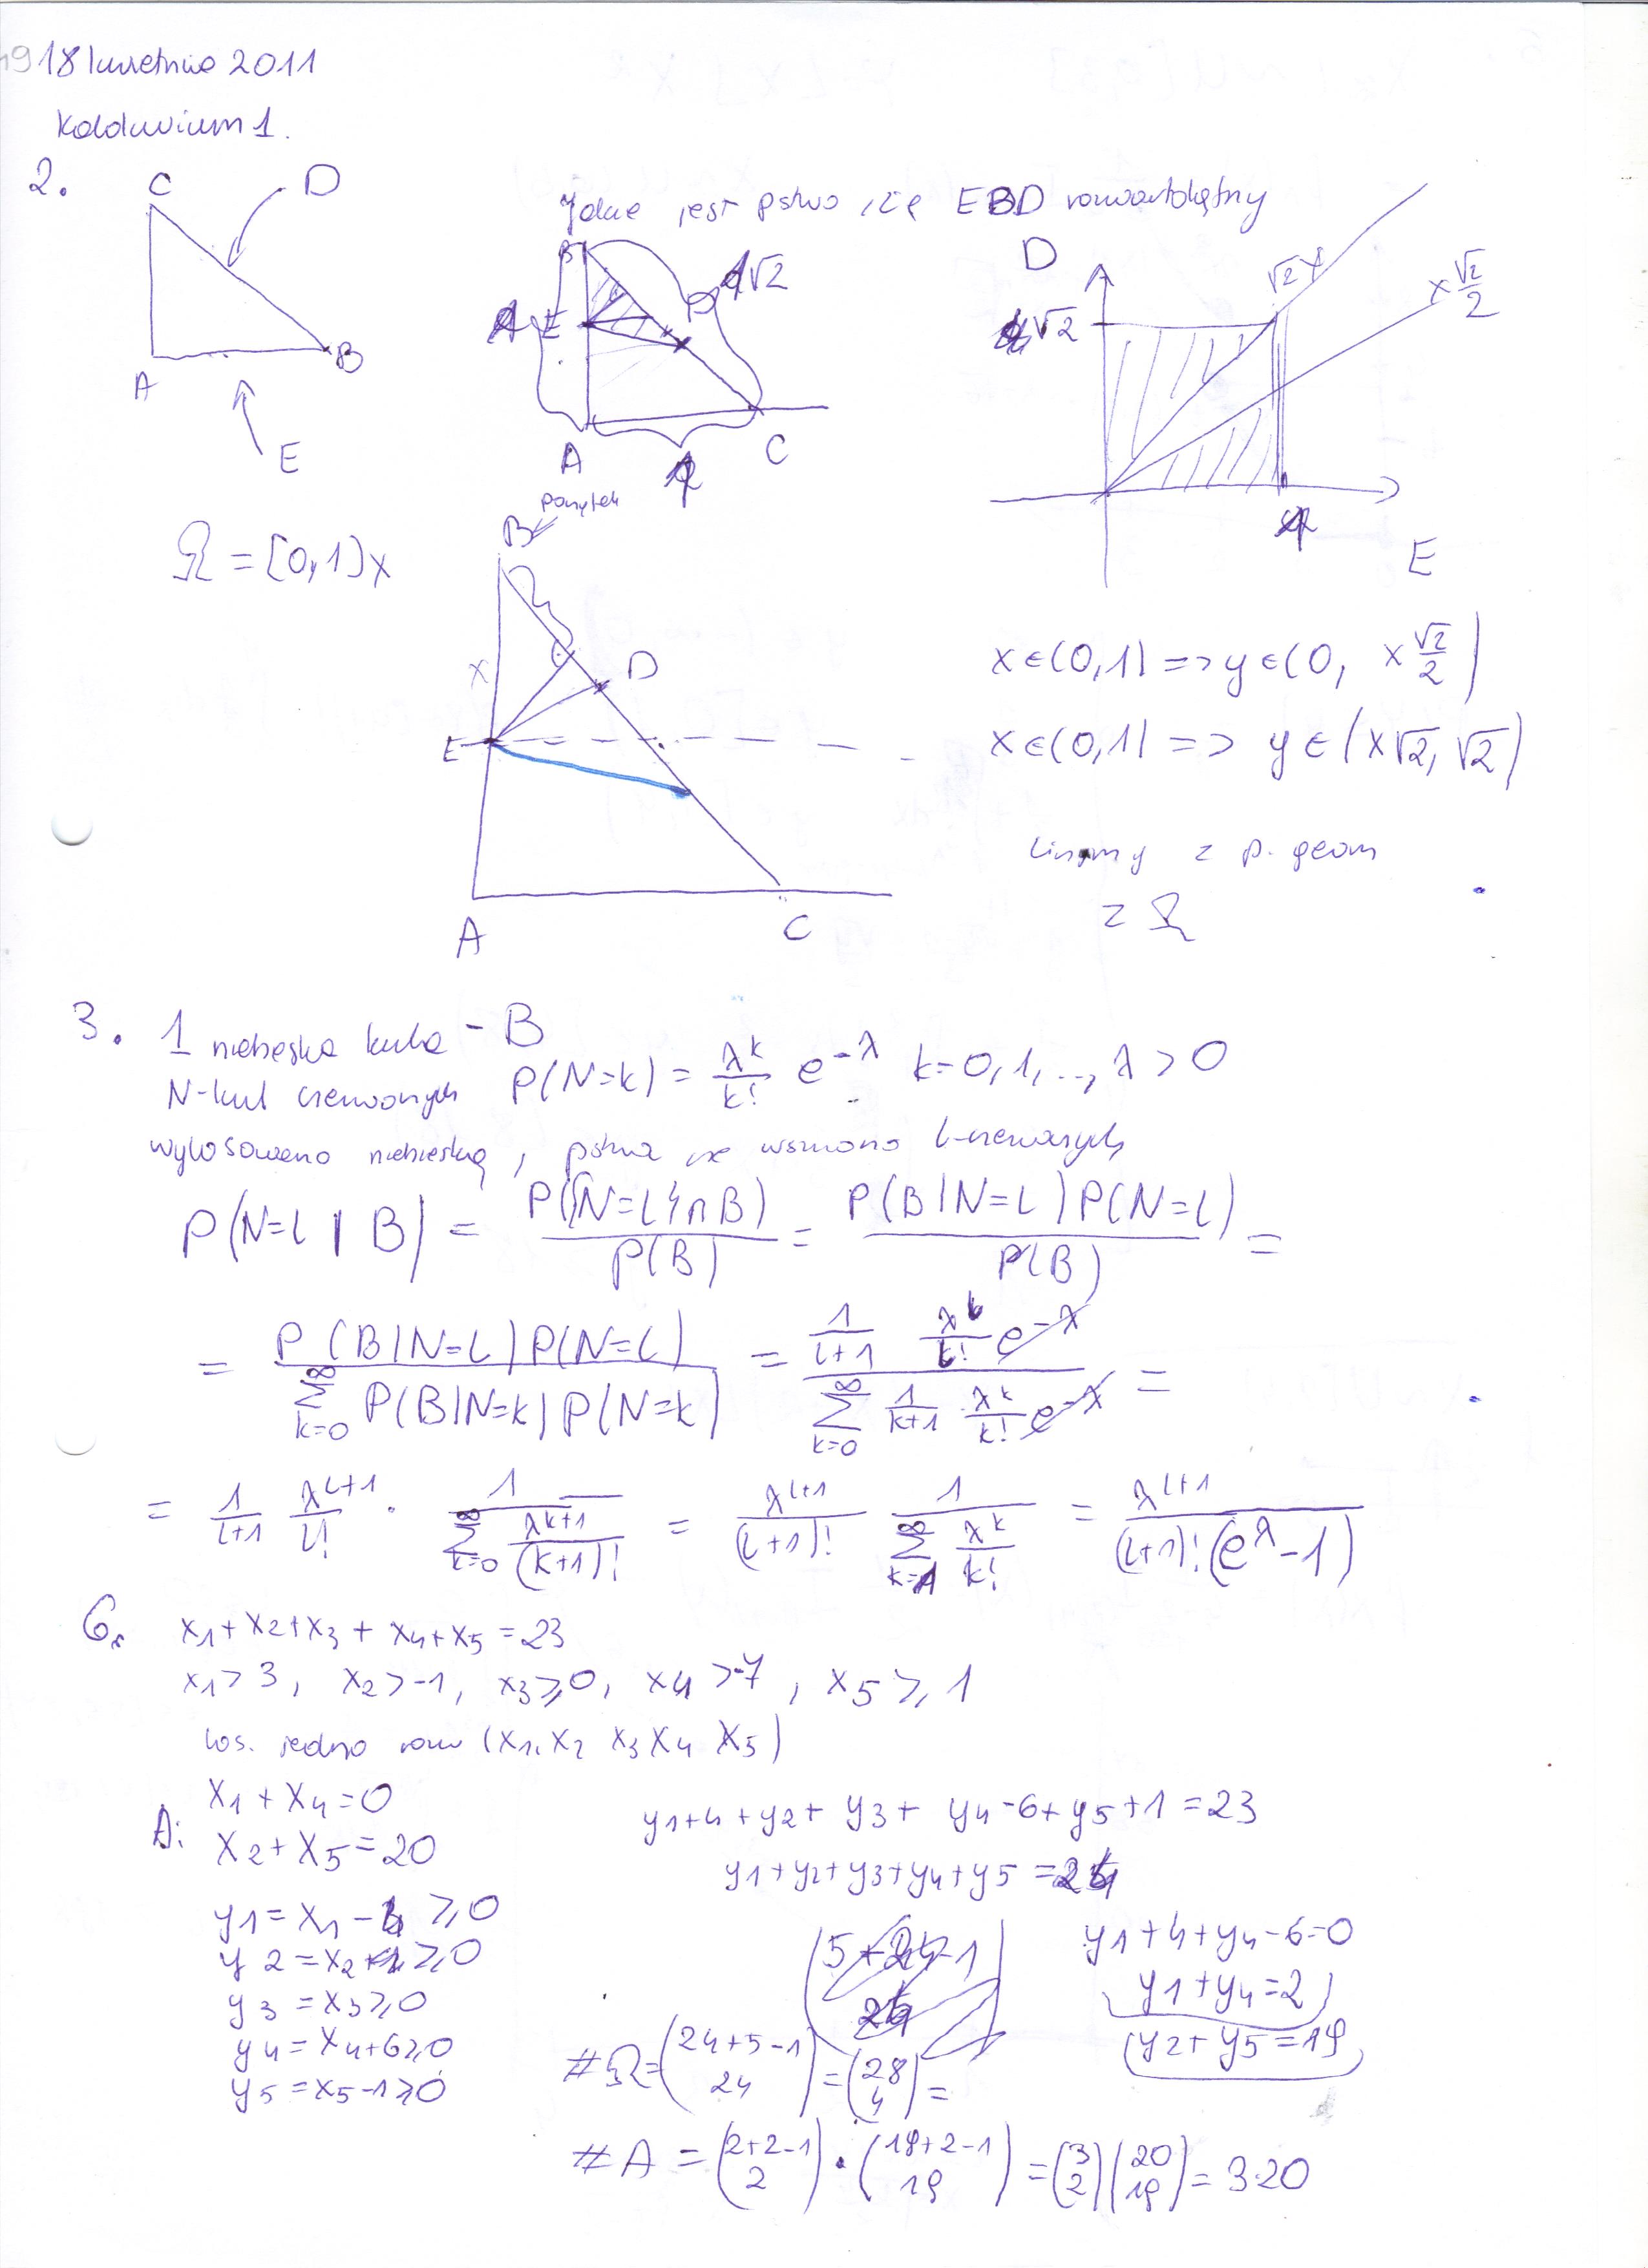 18 kwietnia 2011
Kolokwium 1.
2.
C D
A B
E
Jakie jest pstwo, że EBD rozwartokątny
B
E D 1√2
A 1 C
D
√2 x
x √2/2
1√2
1
E
Ω = [0,1) x
B
x D
E
A C
x ∈ (0,1) => y ∈ (0, x √2/2)
x ∈ (0,1) => y ∈ (x√2, √2)
liczymy z p. geom
z Ω
3. 1 niebieska kula - B
N-kul czerwonych P(N=k) = λ^k/k! e^-λ k=0,1,..., λ > 0
wylosowano niebieską, pstwo że wrzucono l-czerwonych
P(N=l | B) = P({N=l}∩B)/P(B) = P(B|N=l)P(N=l)/P(B) =
= P(B|N=l)P(N=l) / ∑_{k=0}^∞ P(B|N=k)P(N=k) = 1/(l+1) λ^l/l! e^-λ / ∑_{k=0}^∞ 1/(k+1) · λ^k/k! e^-λ =
= 1/(l+1) λ^{l+1}/l! · 1/∑_{k=0}^∞ λ^{k+1}/(k+1)! = λ^{l+1}/(l+1)! 1/∑_{k=1}^∞ λ^k/k! = λ^{l+1}/((l+1)!(e^λ-1))
6. x1+x2+x3+x4+x5=23
x1>3, x2>-1, x3≥0, x4>-7, x5≥1
los. jedno rozw (x1, x2 x3 x4 x5)
A: x1+x4=0
x2+x5=20
y1+4+y2+y3+y4-6+y5+1=23
y1+y2+y3+y4+y5=24
y1=x1-4≥0
y2=x2≥0
y3=x3≥0
y4=x4+6≥0
y5=x5-1≥0
(5+24-1 24)
y1+4+y4-6=0
y1+y4=2
y2+y5=19
#Ω=(24+5-1 24)=(28 4)=
#A=(2+2-1 2)·(19+2-1 19)=(3 2)(20 19)=3·20